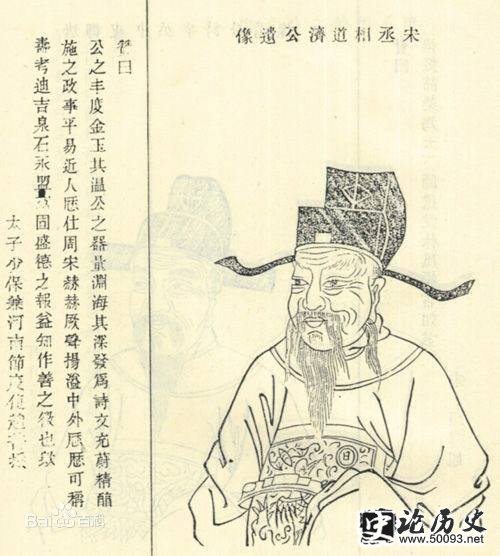 宋丞相道濟公遺像
曰
公之丰度金玉其温公之器量淵海其深發爲詩文充蔚精醇
施之政事平易近人厯仕周宋赫赫厥聲揚溢中外厯厯可稱
壽考迪吉泉石永盟固盛德之報益知作善之徵也歟
太子少保兼河南節度使趙普撰
Baidu百科
论历史
www.50093.net